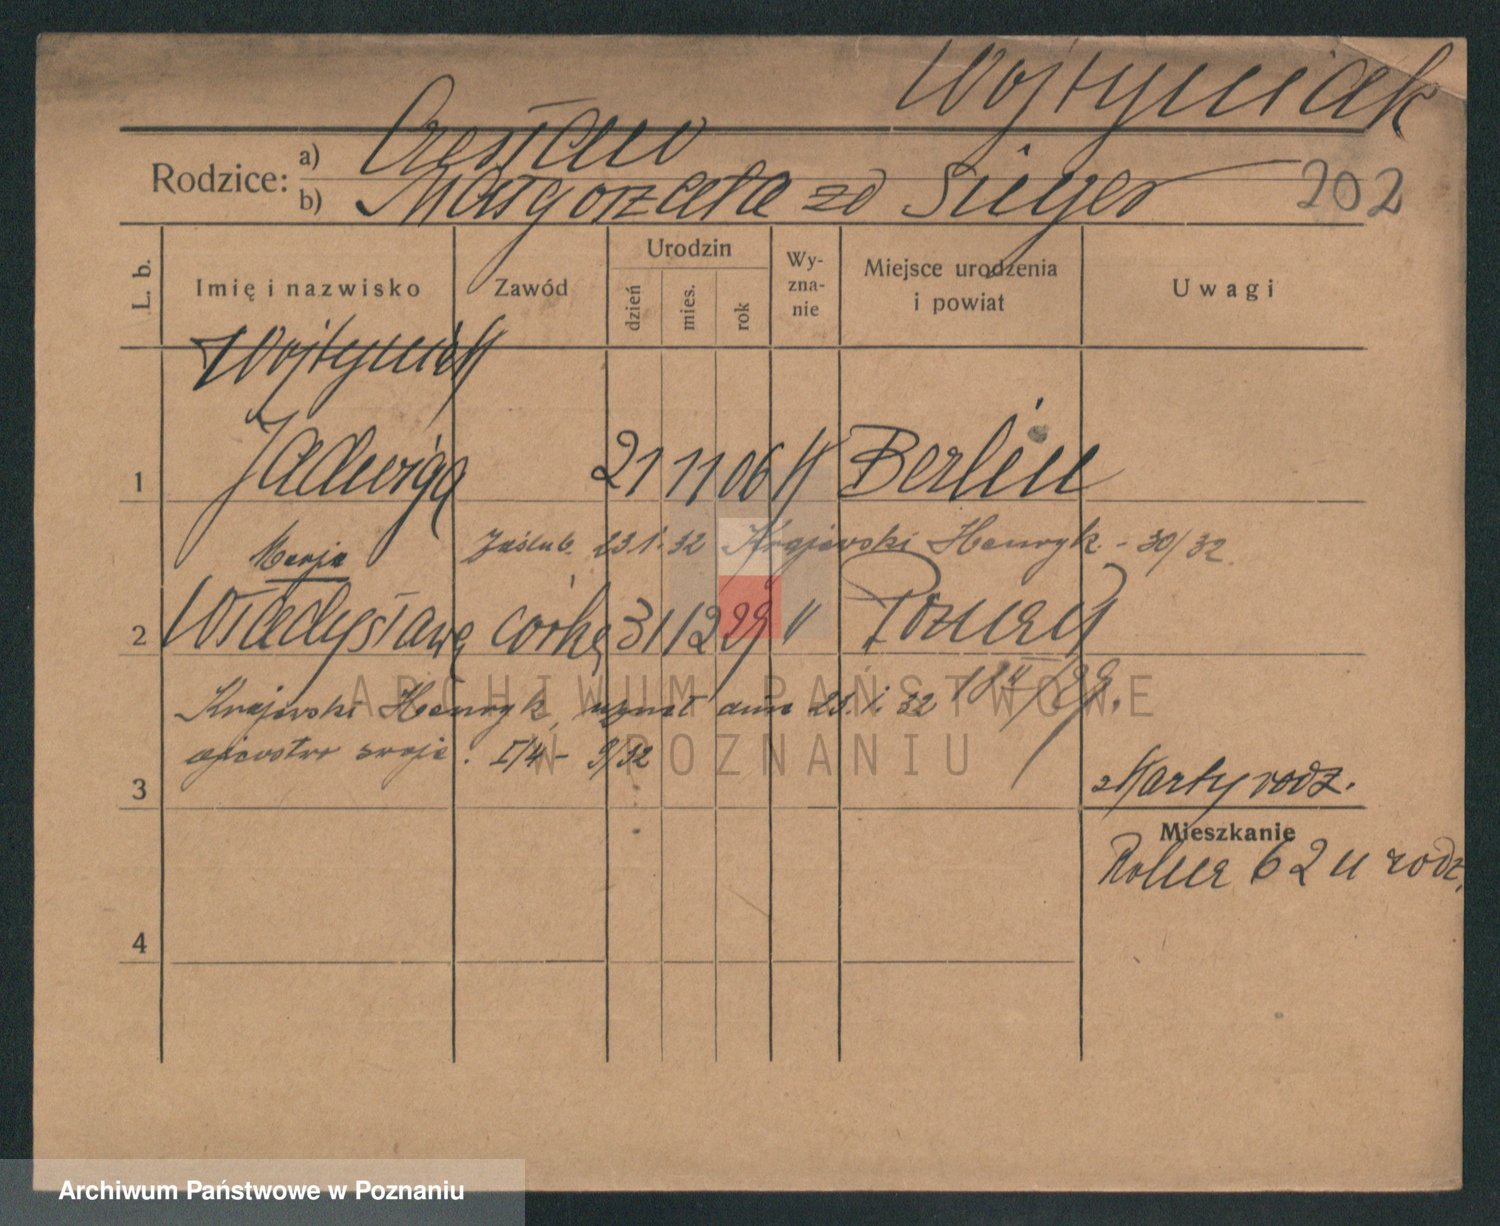 Wojtyniak
Rodzice: a) Czesław
b) Małgorzata zd Sieger
202
L. b.
Imię i nazwisko
Zawód
Urodzin
dzień
mies.
rok
Wy-
zna-
nie
Miejsce urodzenia
i powiat
Uwagi
Wojtyniak
1 Jadwiga 21 11 06 K Berlin
Zaślub. 23.1.32 Krajewski Henryk - 30/32.
Marja
2 Władysława córka 31 12 29 " Poznań
Krajewski Henryk uznał dnia 23.1.32
ojcostwo swoje. I/4 - 9/32
3
z Karty rodz.
Mieszkanie
Polna 62 u rodz.
4
ARCHIWUM PAŃSTWOWE
W POZNANIU
Archiwum Państwowe w Poznaniu